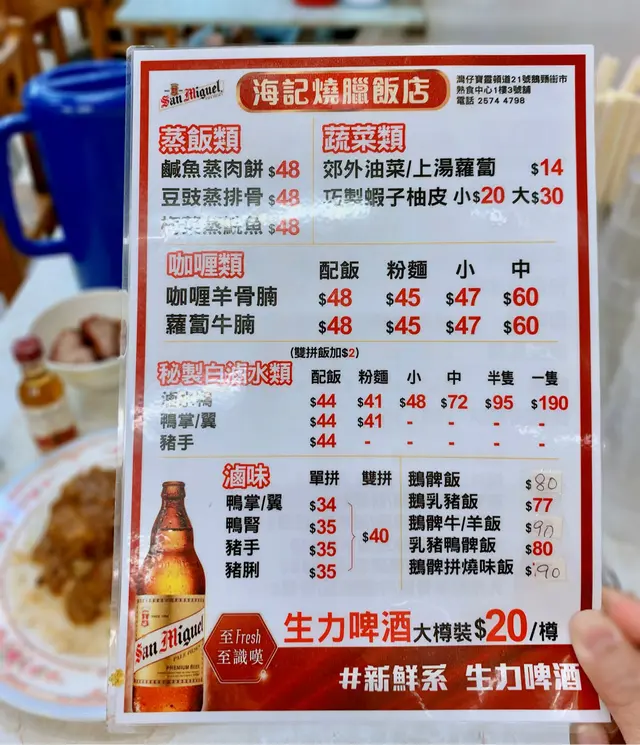 San Miguel
海記燒臘飯店
灣仔寶靈頓道21號鵝頸街市
熟食中心1樓3號舖
電話 2574 4798
蒸飯類
鹹魚蒸肉餅 $48
豆豉蒸排骨 $48
梅菜蒸鯇魚 $48
蔬菜類
郊外油菜/上湯蘿蔔 $14
巧製蝦子柚皮 小$20 大$30
咖喱類 配飯 粉麵 小 中
咖喱羊骨腩 $48 $45 $47 $60
蘿蔔牛腩 $48 $45 $47 $60
(雙拼飯加$2)
秘製白滷水類 配飯 粉麵 小 中 半隻 一隻
滷水鴨 $44 $41 $48 $72 $95 $190
鴨掌/翼 $44 $41 - - - -
豬手 $44 - - - - -
滷味 單拼 雙拼
鴨掌/翼 $34
鴨腎 $35
豬手 $35
豬脷 $35
$40
鵝髀飯 $80
鵝乳豬飯 $77
鵝髀牛/羊飯 $90
乳豬鴨髀飯 $80
鵝髀拼燒味飯 $90
San Miguel
PALE PILSEN
PREMIUM BEER
至Fresh
至識嘆
生力啤酒大樽裝$20/樽
#新鮮系 生力啤酒